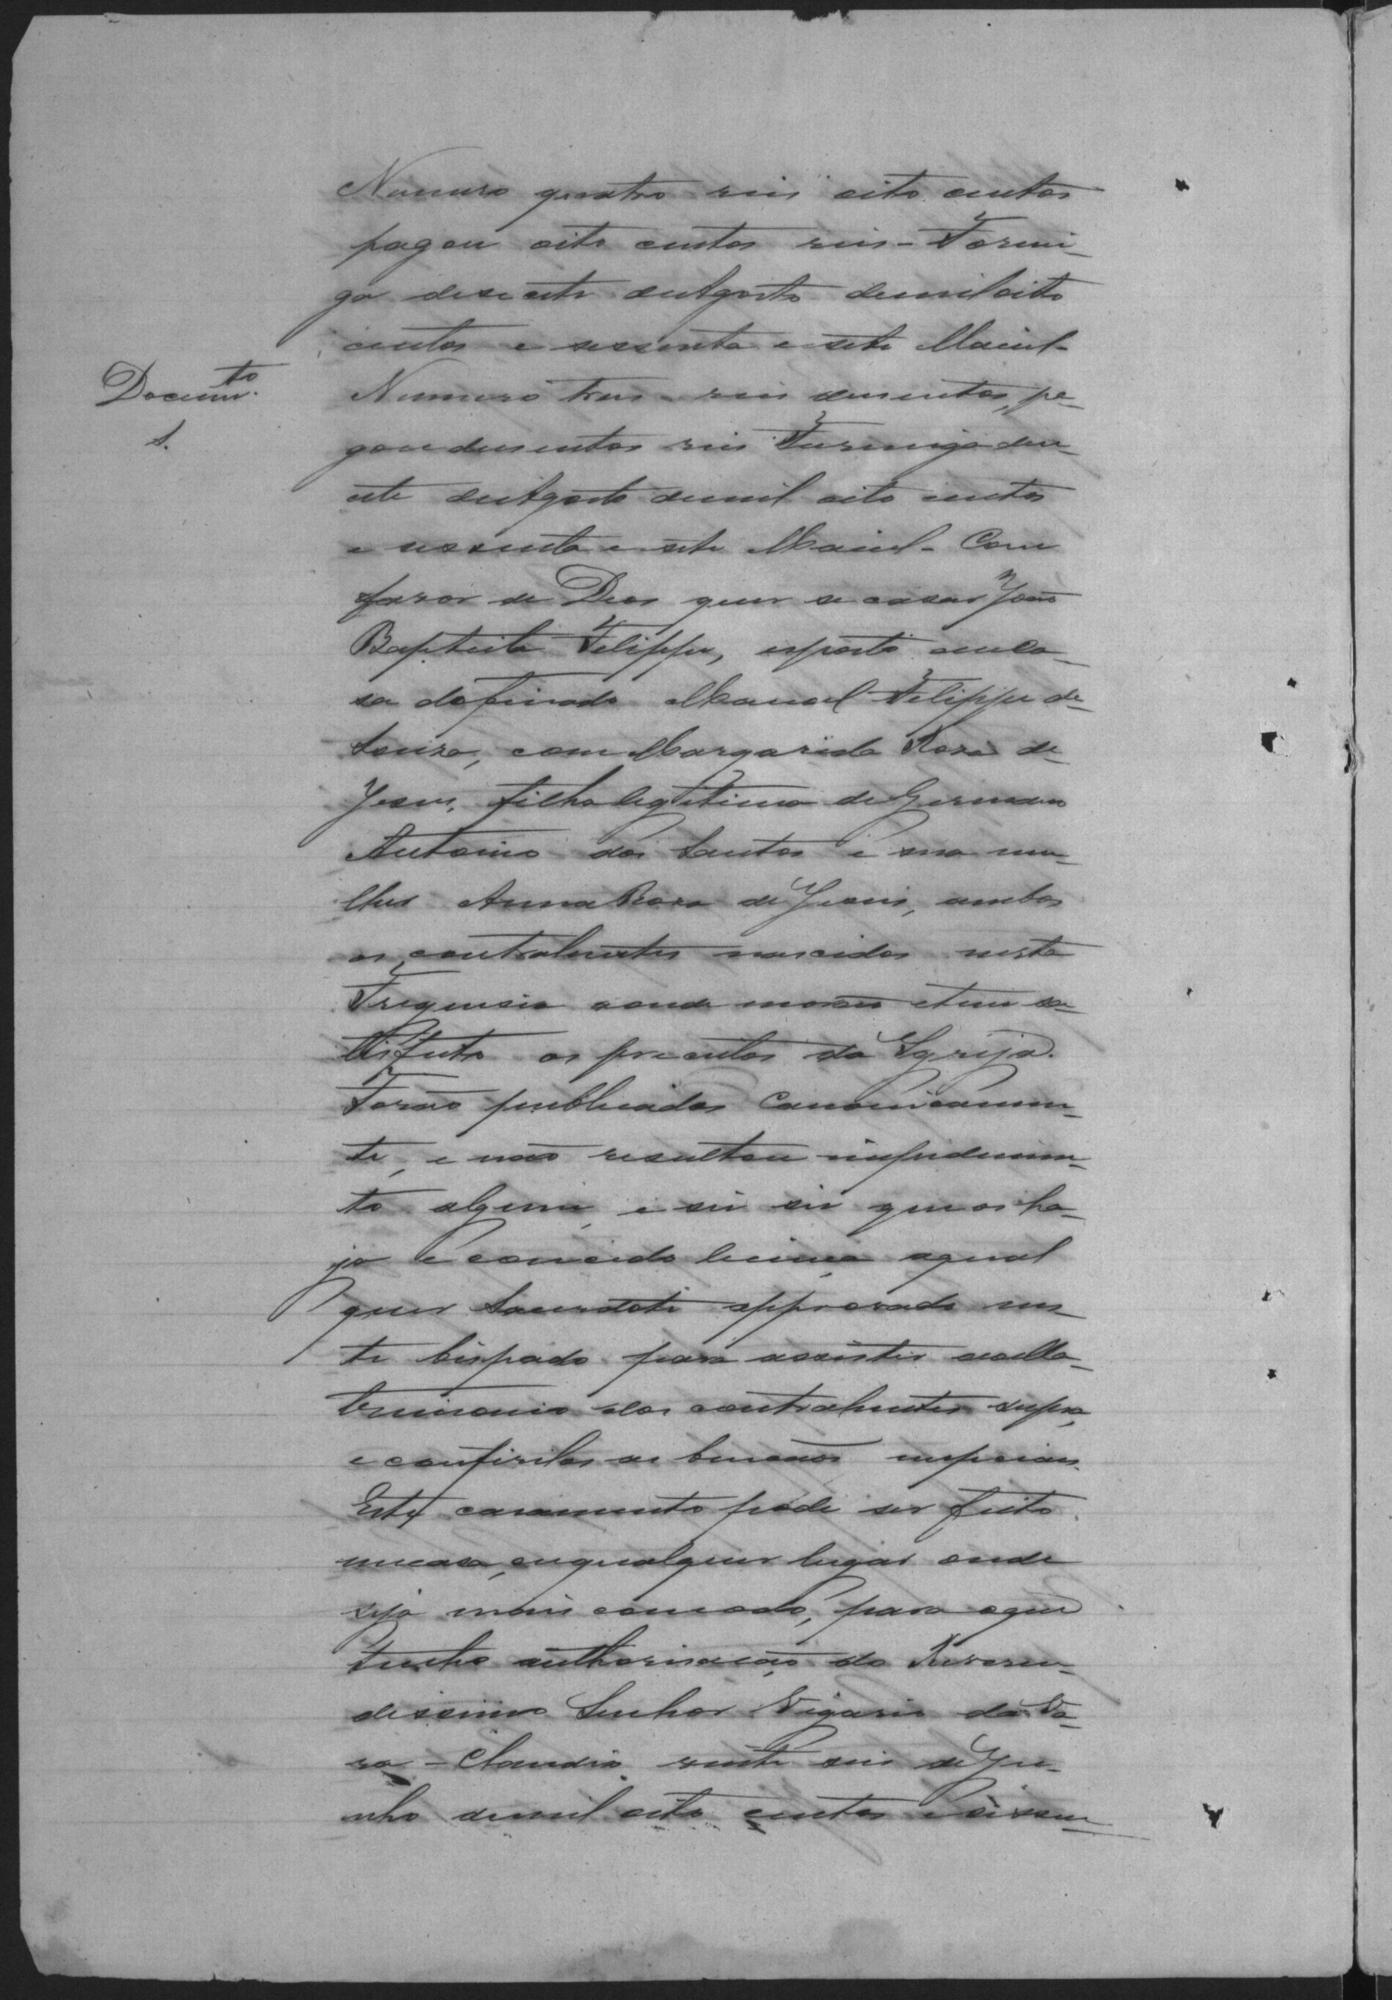 Numero quatro reis oito centos
pagou oito centos reis - Formi-
ga desesete de Agosto de mil oito
centos e sessenta e sete Maciel -
Documto.
1.
Numero tres - reis dusentos, pa-
gou dusentos reis Formiga deze-
sete de Agosto de mil oito centos
e sessenta e sete Maciel - Com
favor de Deos quer se casar João
Baptista Felippe, exposto em ca-
sa do finado Manoel Felippe de
Souza, com Margarida Roza de
Jesus, filha legitima de Germano
Antonio dos Santos e sua mu-
lher Anna Roza de Jesus, ambos
os contrahentes nascidos nesta
Freguesia aonde morão e tem sa-
tisfeito os preceitos da Igreja.
Forão publicados Canonicamen-
te, e não resultou impedimen-
to algum, e sei sei que os ha-
ja e concedo licença a qual
quer Sacerdote approvado nes-
te bispado para assistir ao Ma-
trimonio dos contrahentes supra,
e conferilos as bençãos nupciaes.
Este casamento pode ser feito
em casa, em qualquer lugar onde
seja mais comodo, para o que
tenho authorisação do Reveren-
dissimo Senhor Vigario da Va-
ra - Claudio vinte seis de Ju-
nho de mil oito centos e sessen-